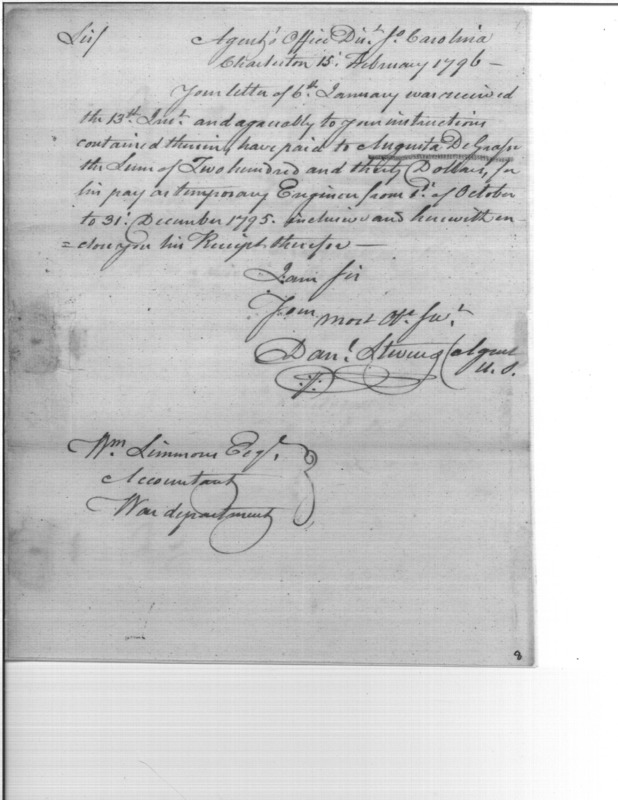 Sir/ Agent's Office Dist. So. Carolina
Charleston 15t. February 1796 —
Your letter of 6th. January was received
the 13th. Inst. and agreeably to your instructions
contained therein, have paid to Augusta De Grasse
the Sum of Two hundred and thirty Dollars, for
his pay as temporary Engineer from 1st. of October
to 31t. December 1795. inclusive and herewith en-
=close you his Receipt therefor —
I am Sir
Your most Obt. Svt.
Danl. Stevens Agent
U.S.
Wm Simmons Esqr.
Accountant
War department
8